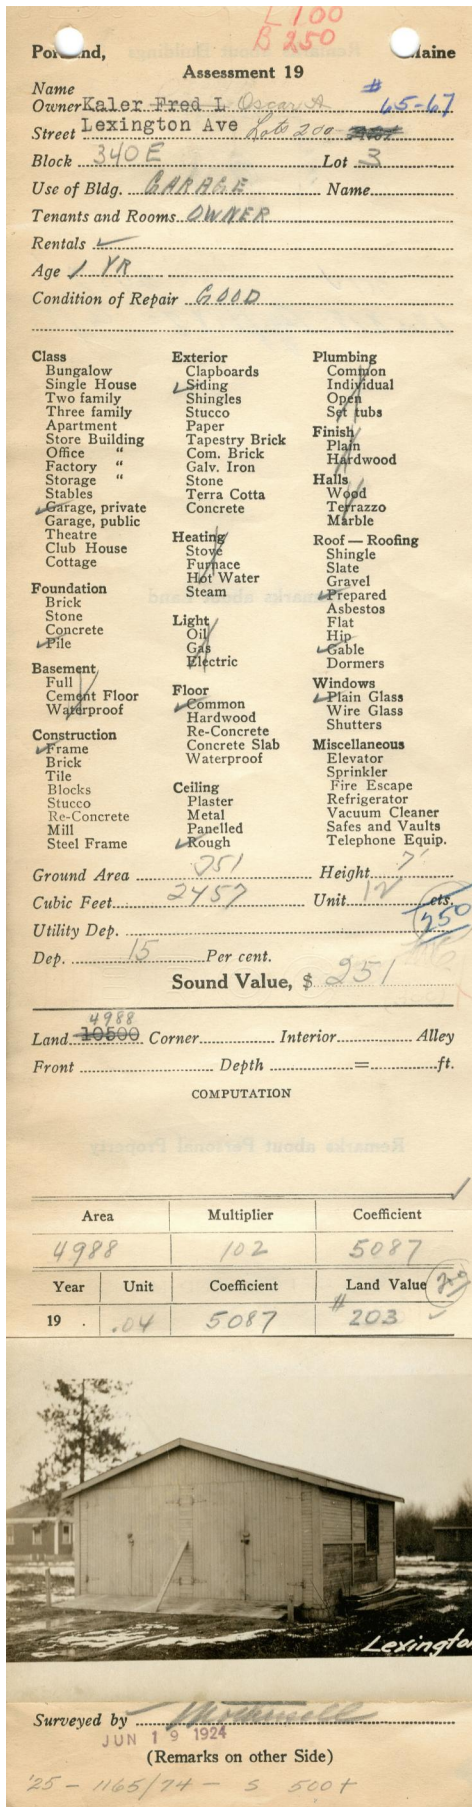 L 100
B 250
Portland, Maine
Assessment 19
Name
Owner Kaler Fred L Oscar A # 65-67
Street Lexington Ave Lots 200
Block 340E Lot 3
Use of Bldg. GARAGE Name
Tenants and Rooms OWNER
Rentals ✓
Age 1 YR
Condition of Repair GOOD
Class
Bungalow
Single House
Two family
Three family
Apartment
Store Building
Office "
Factory "
Storage "
Stables
Garage, private
Garage, public
Theatre
Club House
Cottage
Foundation
Brick
Stone
Concrete
Pile
Basement
Full
Cement Floor
Waterproof
Construction
Frame
Brick
Tile
Blocks
Stucco
Re-Concrete
Mill
Steel Frame
Exterior
Clapboards
Siding
Shingles
Stucco
Paper
Tapestry Brick
Com. Brick
Galv. Iron
Stone
Terra Cotta
Concrete
Heating
Stove
Furnace
Hot Water
Steam
Light
Oil
Gas
Electric
Floor
Common
Hardwood
Re-Concrete
Concrete Slab
Waterproof
Ceiling
Plaster
Metal
Panelled
Rough
Plumbing
Common
Individual
Open
Set tubs
Finish
Plain
Hardwood
Halls
Wood
Terrazzo
Marble
Roof — Roofing
Shingle
Slate
Gravel
Prepared
Asbestos
Flat
Hip
Gable
Dormers
Windows
Plain Glass
Wire Glass
Shutters
Miscellaneous
Elevator
Sprinkler
Fire Escape
Refrigerator
Vacuum Cleaner
Safes and Vaults
Telephone Equip.
Ground Area 351 Height 7'
Cubic Feet 2457 Unit 12 cts.
250
Utility Dep.
Dep. 15 Per cent.
Sound Value, $ 251
4988
Land 10500 Corner Interior Alley
Front Depth = ft.
COMPUTATION
Area Multiplier Coefficient
4988 102 5087
Year Unit Coefficient Land Value
19 . .04 5087 # 203
Lexington
Surveyed by
JUN 19 1924
(Remarks on other Side)
'25 - 1165/74 - S 500+